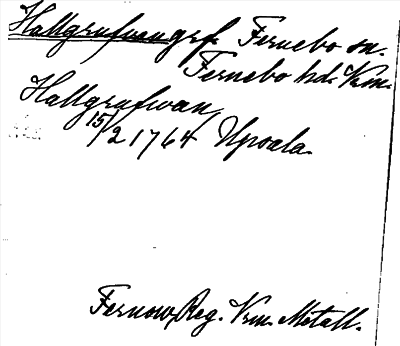 Hallgrufwangrf. Fernebo sn.
Fernebo hd. Vrm.
Hallgrufwan,
15/2 1764 Upsala.
Fernow, Reg. Vrm. Metall.